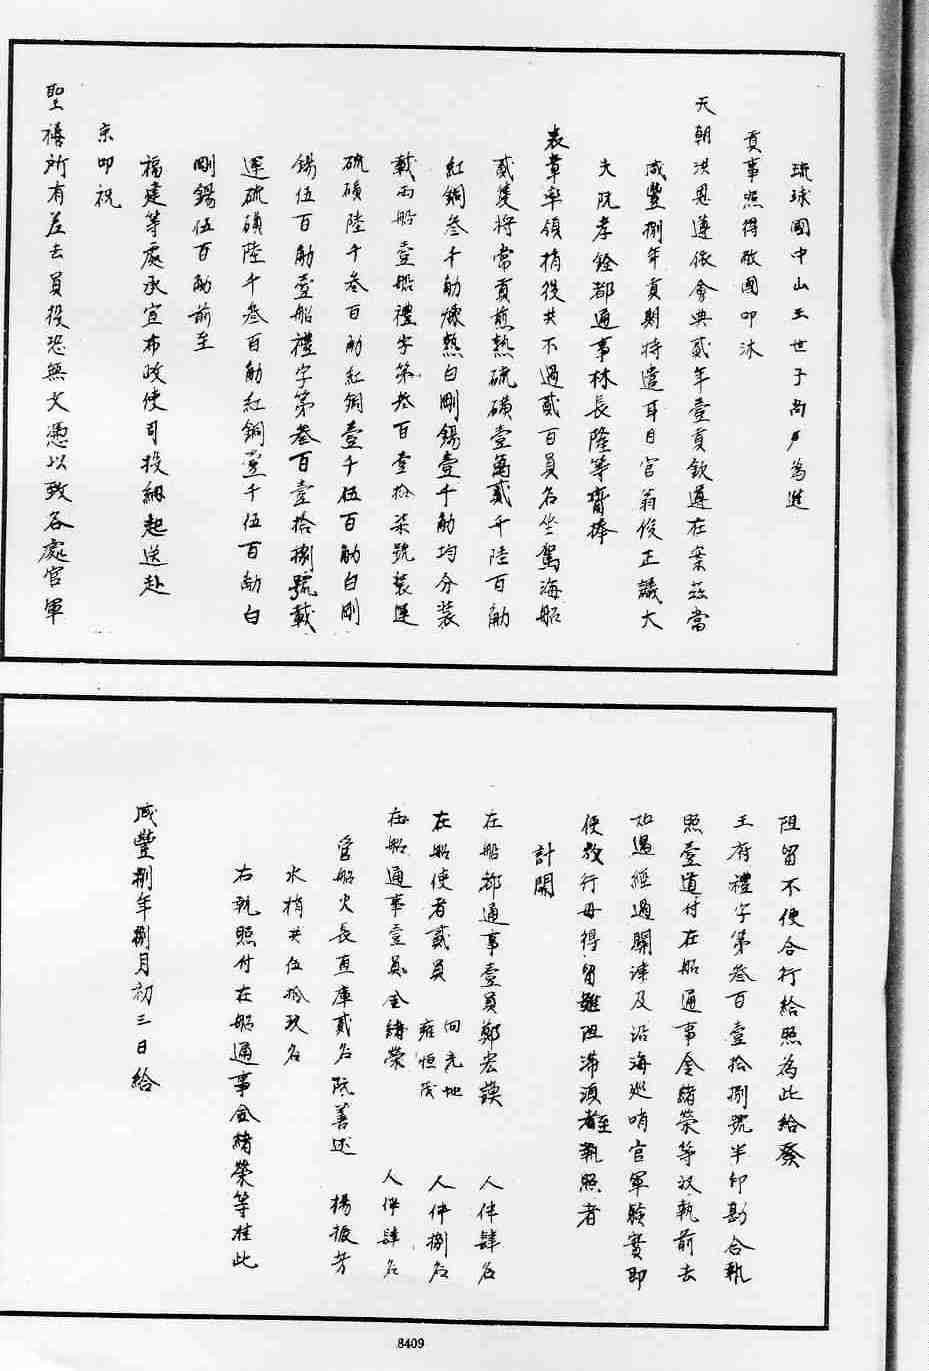 琉球國中山王世子尚 為進
貢事照得敝國叩沐
天朝洪恩遵依會典貳年壹貢欽遵在案茲當
咸豐捌年貢期特遣耳目官翁俊正議大
夫阮孝銓都通事林長隆等齎捧
表章率領梢役共不過貳百員名坐駕海船
貳隻將常貢煎熟硫磺壹萬貳千陸百觔
紅銅叁千觔煉熟白剛錫壹千觔均分裝
載兩船壹船禮字第叁百壹拾柒號裝運
硫磺陸千叁百觔紅銅壹千伍百觔白剛
錫伍百觔壹船禮字第叁百壹拾捌號載
運硫磺陸千叁百觔紅銅壹千伍百觔白
剛錫伍百觔前至
福建等處承宣布政使司投納起送赴
京叩祝
聖禧所有差去員役恐無文憑以致各處官軍
阻留不便合行給照為此給發
王府禮字第叁百壹拾捌號半印勘合執
照壹道付在船通事金緒榮等收執前去
如遇經過關津及沿海巡哨官軍驗實即
便放行毋得留難阻滯須至執照者
計開
在船都通事壹員鄭宏謨 人伴肆名
在船使者貳員 向克地 雍恒茂 人伴捌名
在船通事壹員金緒榮 人伴肆名
管船火長直庫貳名阮善述 楊振芳
水梢共伍拾玖名
右執照付在船通事金緒榮等准此
咸豐捌年捌月初三日給
8409